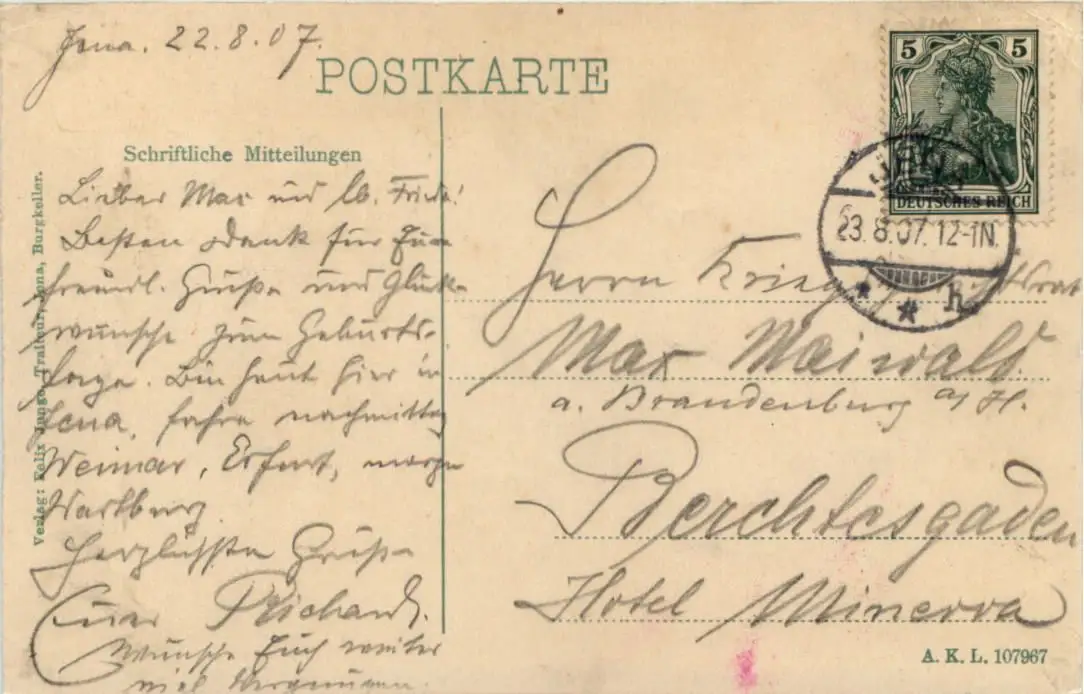 Jena. 22.8.07.
POSTKARTE
5 5
DEUTSCHES REICH
JENA
23.8.07. 12-1N.
* * h
Schriftliche Mitteilungen
Lieber Max und lb. Frieda!
Besten Dank für Eure
freundl. Grüße und Glück-
wünsche zum Geburts-
tage. Bin heut hier in
Jena, fahre nachmittag
Weimar, Erfurt, morgen
Wartburg.
Herzlichste Grüße
Euer Richard.
Wünsche Euch weiter
viel Vergnügen.
Verlag: Felix Junge, Traiteur, Jena, Burgkeller.
Herrn
Max Maiwald.
a. Brandenburg a/H.
Berchtesgaden
Hotel Minerva
A. K. L. 107967